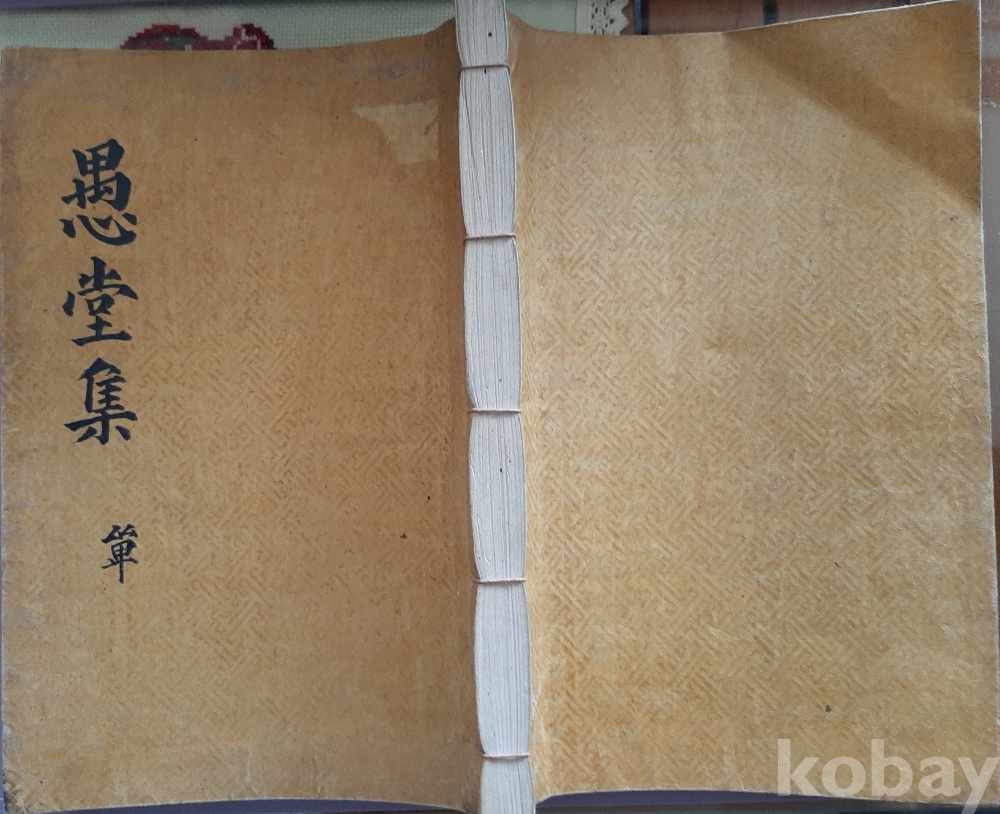 愚堂集
單
kobay